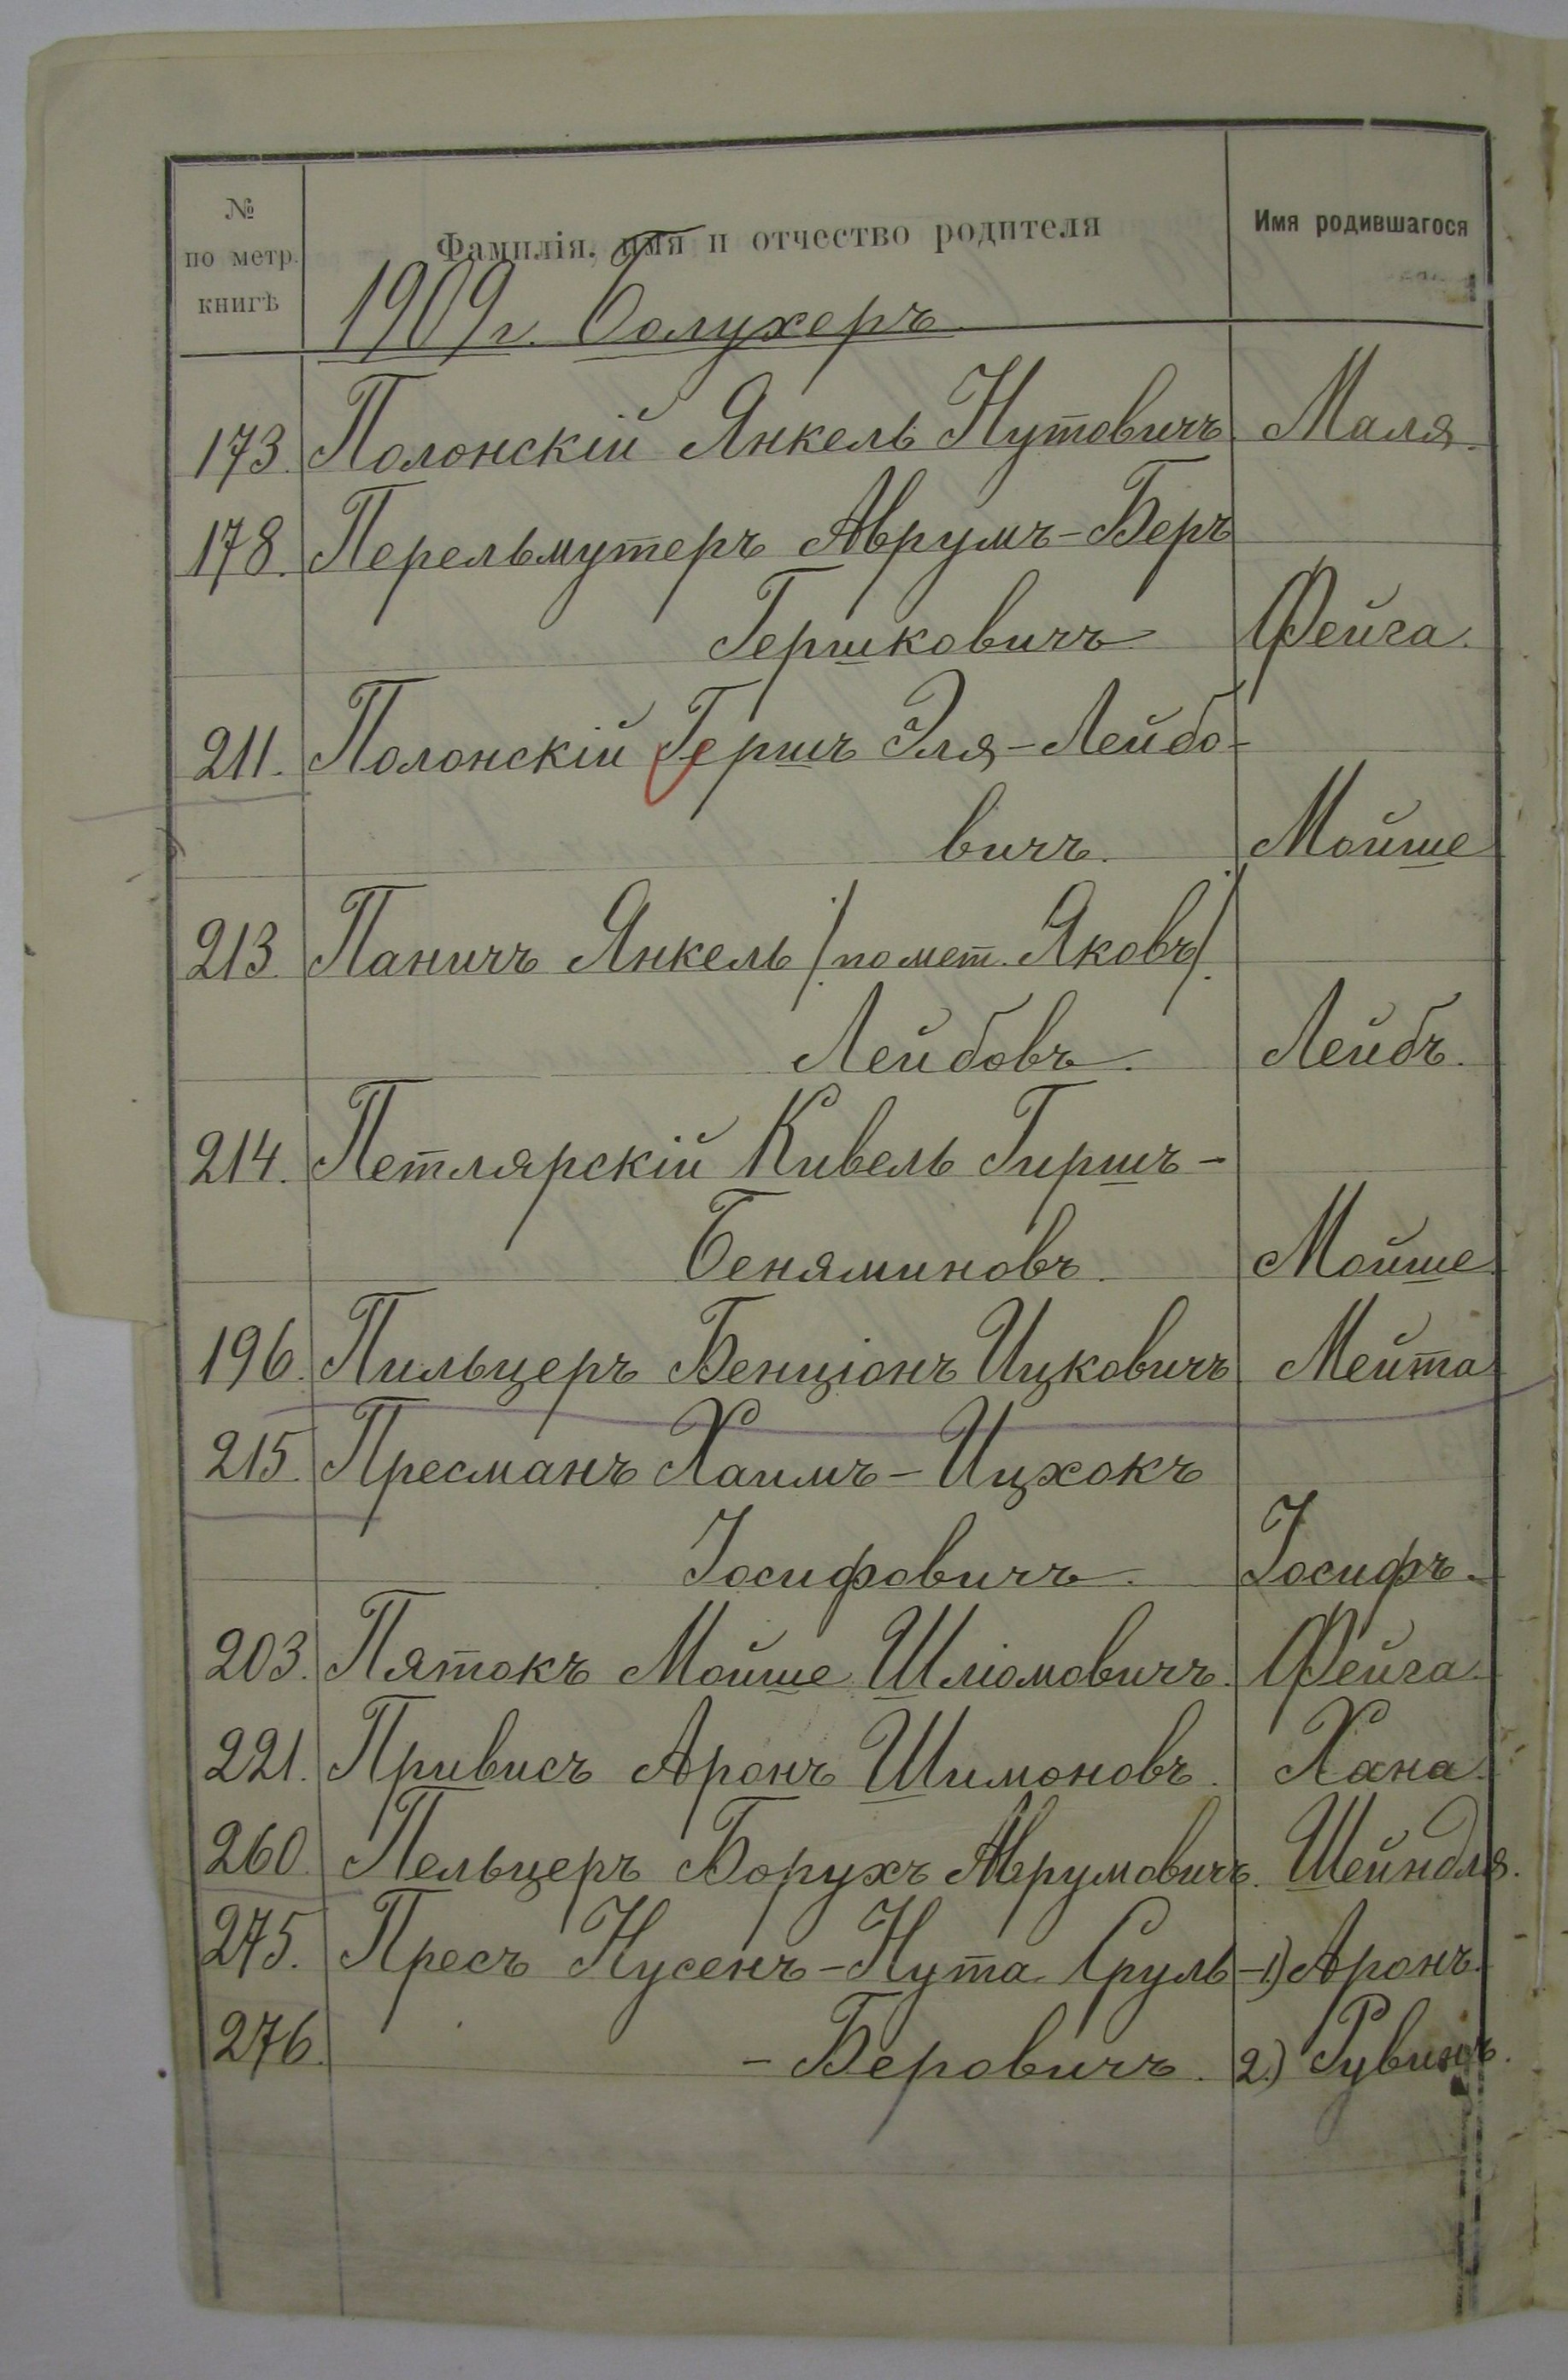 № по метр. книгѣ Фамилія, имя и отчество родителя Имя родившагося
1909 г. Болухеръ
173. Полонскій Янкель Нутовичъ. Маля.
178. Перельмутеръ Аврумъ-Беръ
Гершковичъ Фейга.
211. Полонскій Гершъ Эля-Лейбо-
вичъ. Мойше
213. Паничъ Янкель /помет. Яковъ/
Лейбовъ. Лейбъ.
214. Петлярскій Кивель Гиршъ-
Беняминовъ. Мойше
196. Пильцеръ Бенціонъ Ицковичъ Мейта
215. Пресманъ Хаимъ-Ицхокъ
Іосифовичъ. Іосифъ.
203. Пятокъ Мойше Шліомовичъ. Фейга.
221. Привисъ Аронъ Шимоновъ. Хана.
260. Пельцеръ Борухъ Аврумовичъ. Шейндля.
275. Пресъ Нусенъ-Нута Сруль- 1) Аронъ.
276. -Беровичъ. 2) Рувинъ.